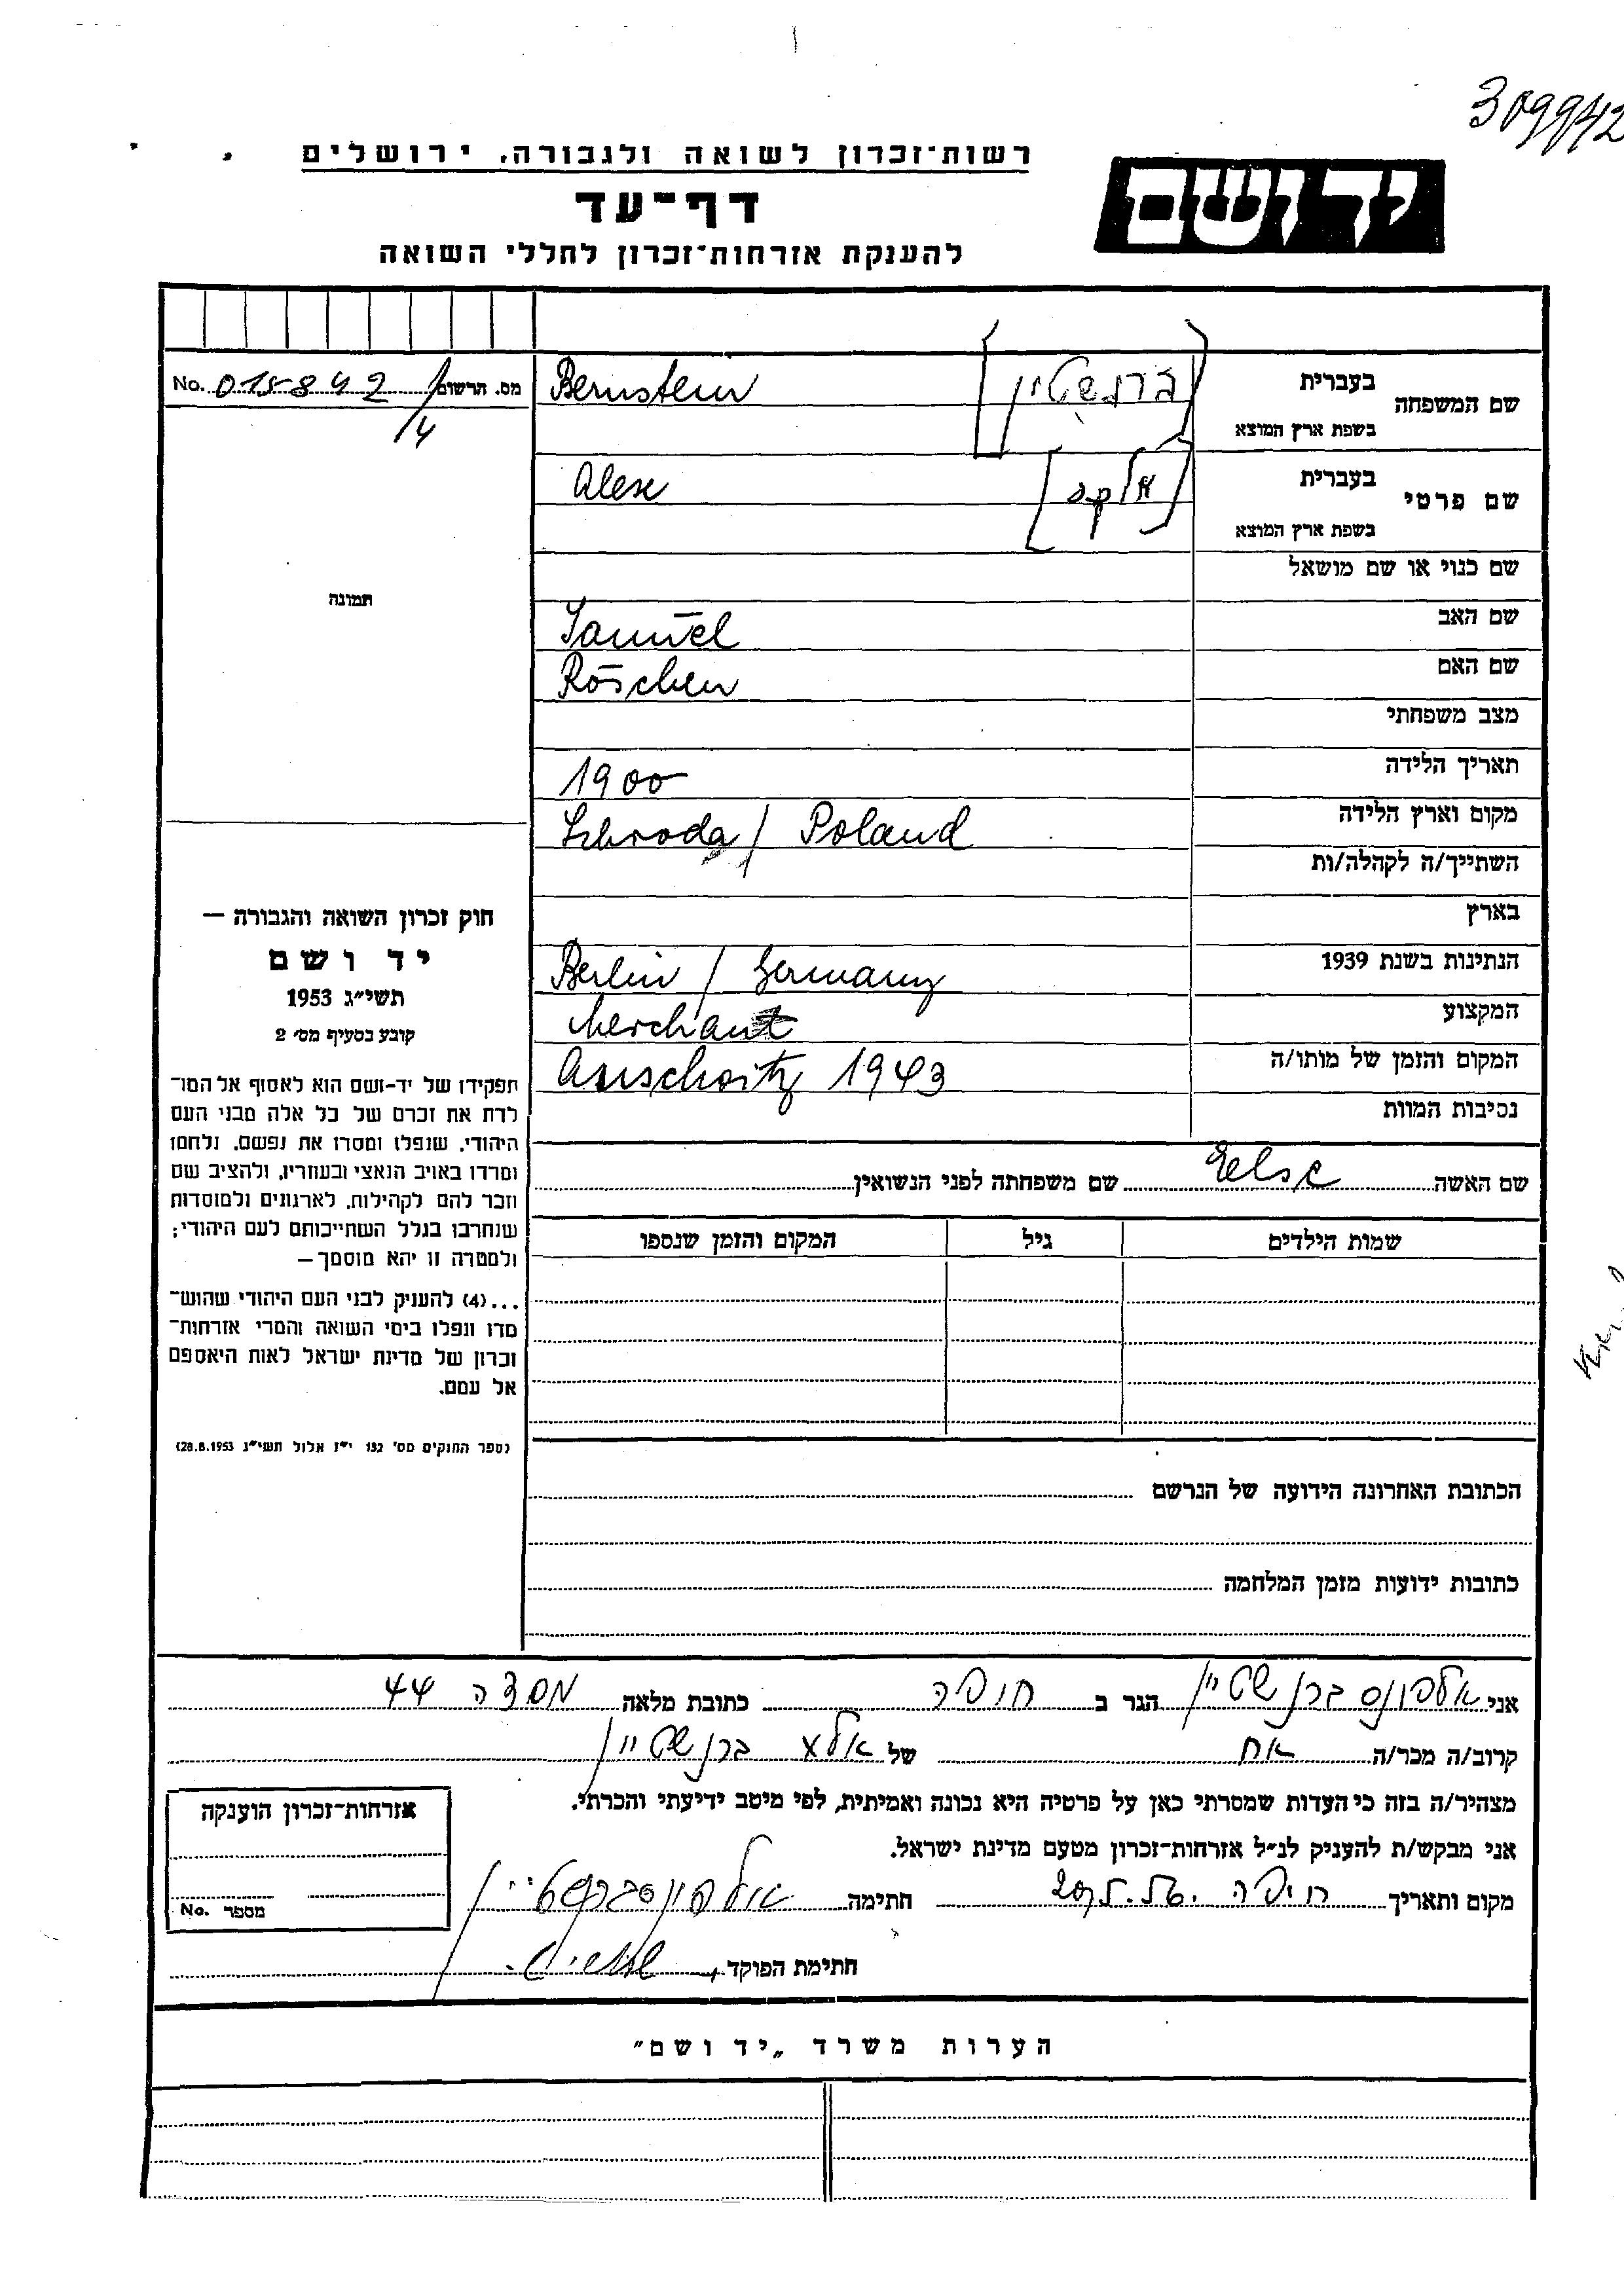 309942
רשות־זכרון לשואה ולגבורה, ירושלים
יד ושם
דף־עד
להענקת אזרחות־זכרון לחללי השואה
מס. הרשום 015842 No.
1/4
שם המשפחה
בעברית ברנשטיין
בשפת ארץ המוצא Bernstein
שם פרטי
בעברית אלקס
בשפת ארץ המוצא Alex
שם כנוי או שם מושאל
שם האב Samuel
שם האם Röschen
מצב משפחתי
תאריך הלידה 1900
מקום וארץ הלידה Schroda / Poland
השתייך/ה לקהלה/ות
בארץ
הנתינות בשנת 1939 Berlin / Germany
המקצוע Merchant
המקום והזמן של מותו/ה Auschwitz 1943
נסיבות המוות
שם האשה Else שם משפחתה לפני הנשואין
שמות הילדים גיל המקום והזמן שנספו
הכתובת האחרונה הידועה של הנרשם
כתובות ידועות מזמן המלחמה
תמונה
חוק זכרון השואה והגבורה —
יד ושם
תשי״ג 1953
קובע בסעיף מס׳ 2
תפקידו של יד-ושם הוא לאסוף אל המו־
לדת את זכרם של כל אלה מבני העם
היהודי, שנפלו ומסרו את נפשם, נלחמו
ומרדו באויב הנאצי ובעוזריו, ולהציב שם
וזכר להם לקהילות, לארגונים ולמוסדות
שנחרבו בגלל השתייכותם לעם היהודי;
ולמטרה זו יהא מוסמך—
...(4) להעניק לבני העם היהודי שהוש־
מדו ונפלו בימי השואה והמרי אזרחות־
זכרון של מדינת ישראל לאות היאספם
אל עמם.
(ספר החוקים מס׳ 132 י״ז אלול תשי״ג 28.8.1953)
אני אלפונס ברנשטיין הגר ב חיפה כתובת מלאה מסדה 44
קרוב/ה מכר/ה אח של אלכס ברנשטיין
מצהיר/ה בזה כי העדות שמסרתי כאן על פרטיה היא נכונה ואמיתית, לפי מיטב ידיעתי והכרתי.
אני מבקש/ת להעניק לנ״ל אזרחות־זכרון מטעם מדינת ישראל.
מקום ותאריך חיפה חתימה אלפונס ברנשטיין
חתימת הפוקד
אזרחות־זכרון הוענקה
מספר No.
הערות משרד „יד ושם״